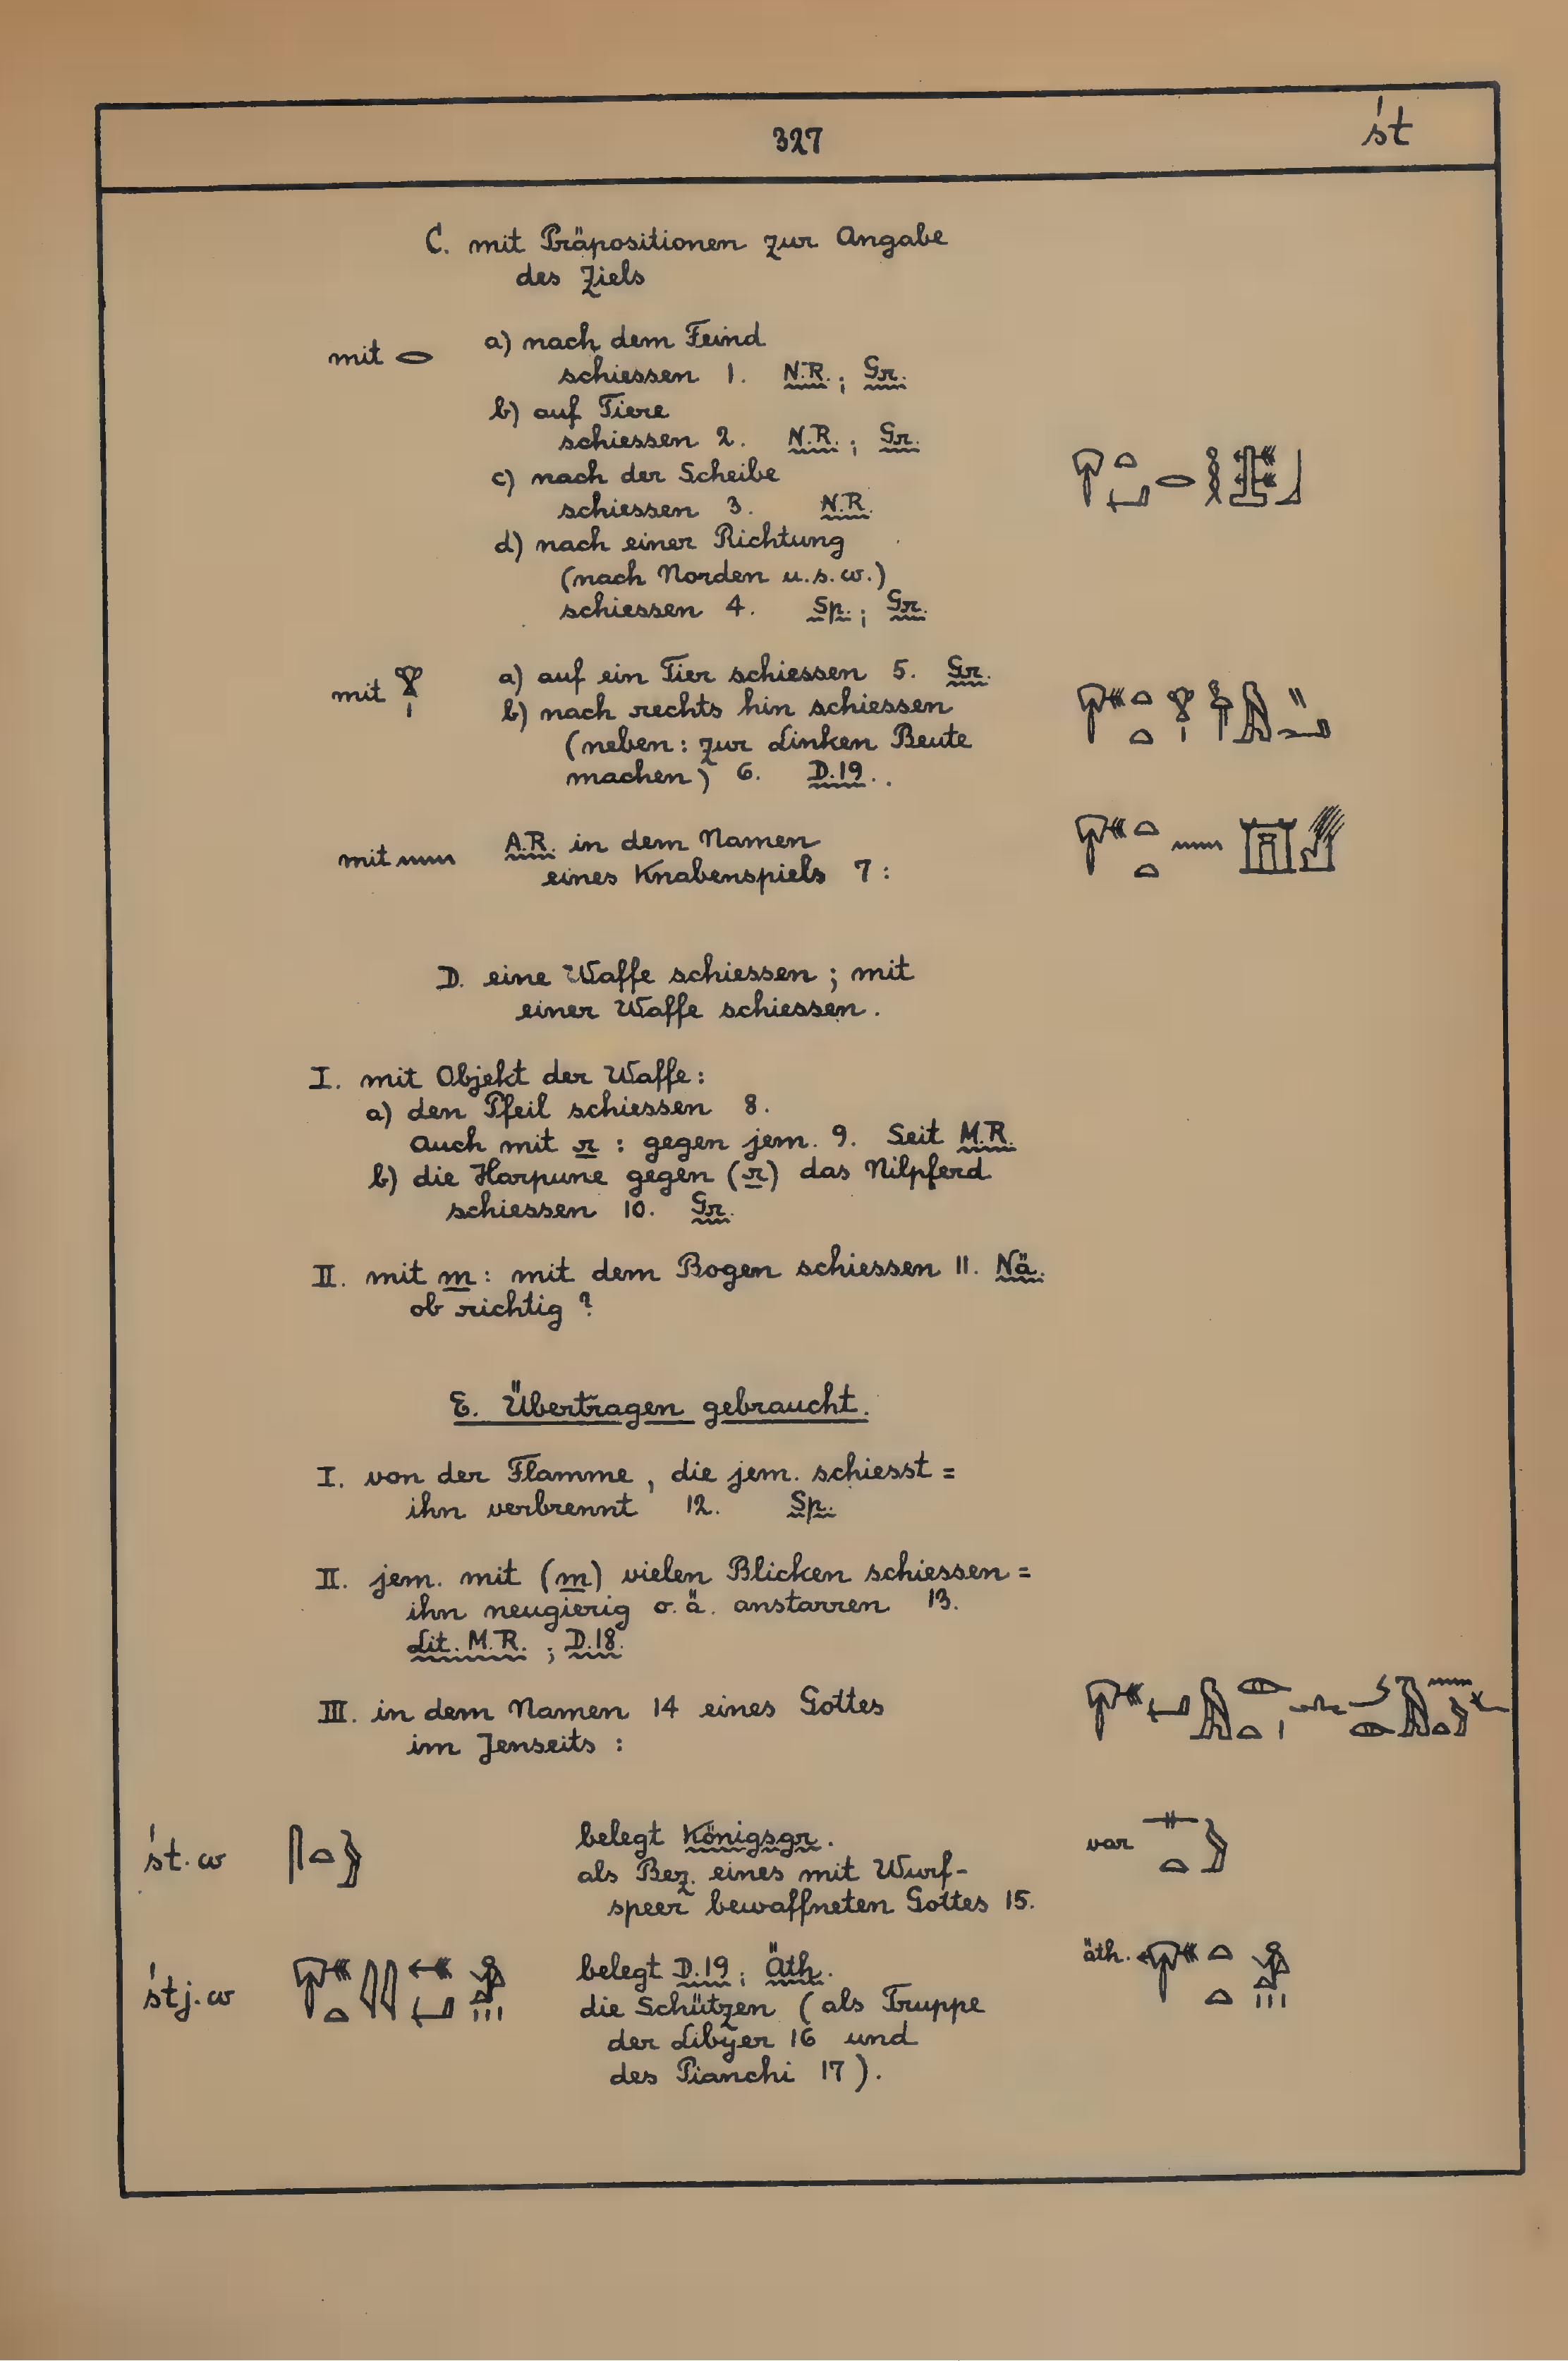 327
śt
C. mit Präpositionen zur Angabe
des Ziels
mit 𓂋 a) nach dem Feind
schiessen 1. N.R.; Gr.
b) auf Tiere
schiessen 2. N.R.; Gr.
c) nach der Scheibe
schiessen 3. N.R.
d) nach einer Richtung
(nach Norden u.s.w.)
schiessen 4. Sp.; Gr.
mit 𓁷𓏤 a) auf ein Tier schiessen 5. Gr.
b) nach rechts hin schiessen
(neben: zur Linken Beute
machen) 6. D.19.
mit 𓈖 A.R. in dem Namen
eines Knabenspiels 7:
D. eine Waffe schiessen; mit
einer Waffe schiessen.
I. mit Objekt der Waffe:
a) den Pfeil schiessen 8.
Auch mit r: gegen jem. 9. Seit M.R.
b) die Harpune gegen (r) das Nilpferd
schiessen 10. Gr.
II. mit m: mit dem Bogen schiessen 11. Nä.
ob richtig?
E. Übertragen gebraucht.
I. von der Flamme, die jem. schiesst =
ihn verbrennt 12. Sp.
II. jem. mit (m) vielen Blicken schiessen =
ihn neugierig o.ä. anstarren 13.
Lit. M.R.; D.18.
III. in dem Namen 14 eines Gottes
im Jenseits:
śt.w 𓋴𓏏 belegt Königsgr. var 𓊃𓏏
als Bez. eines mit Wurf-
speer bewaffneten Gottes 15.
śtj.w belegt D.19; Äth. äth.
die Schützen (als Truppe
der Libyer 16 und
des Pianchi 17).